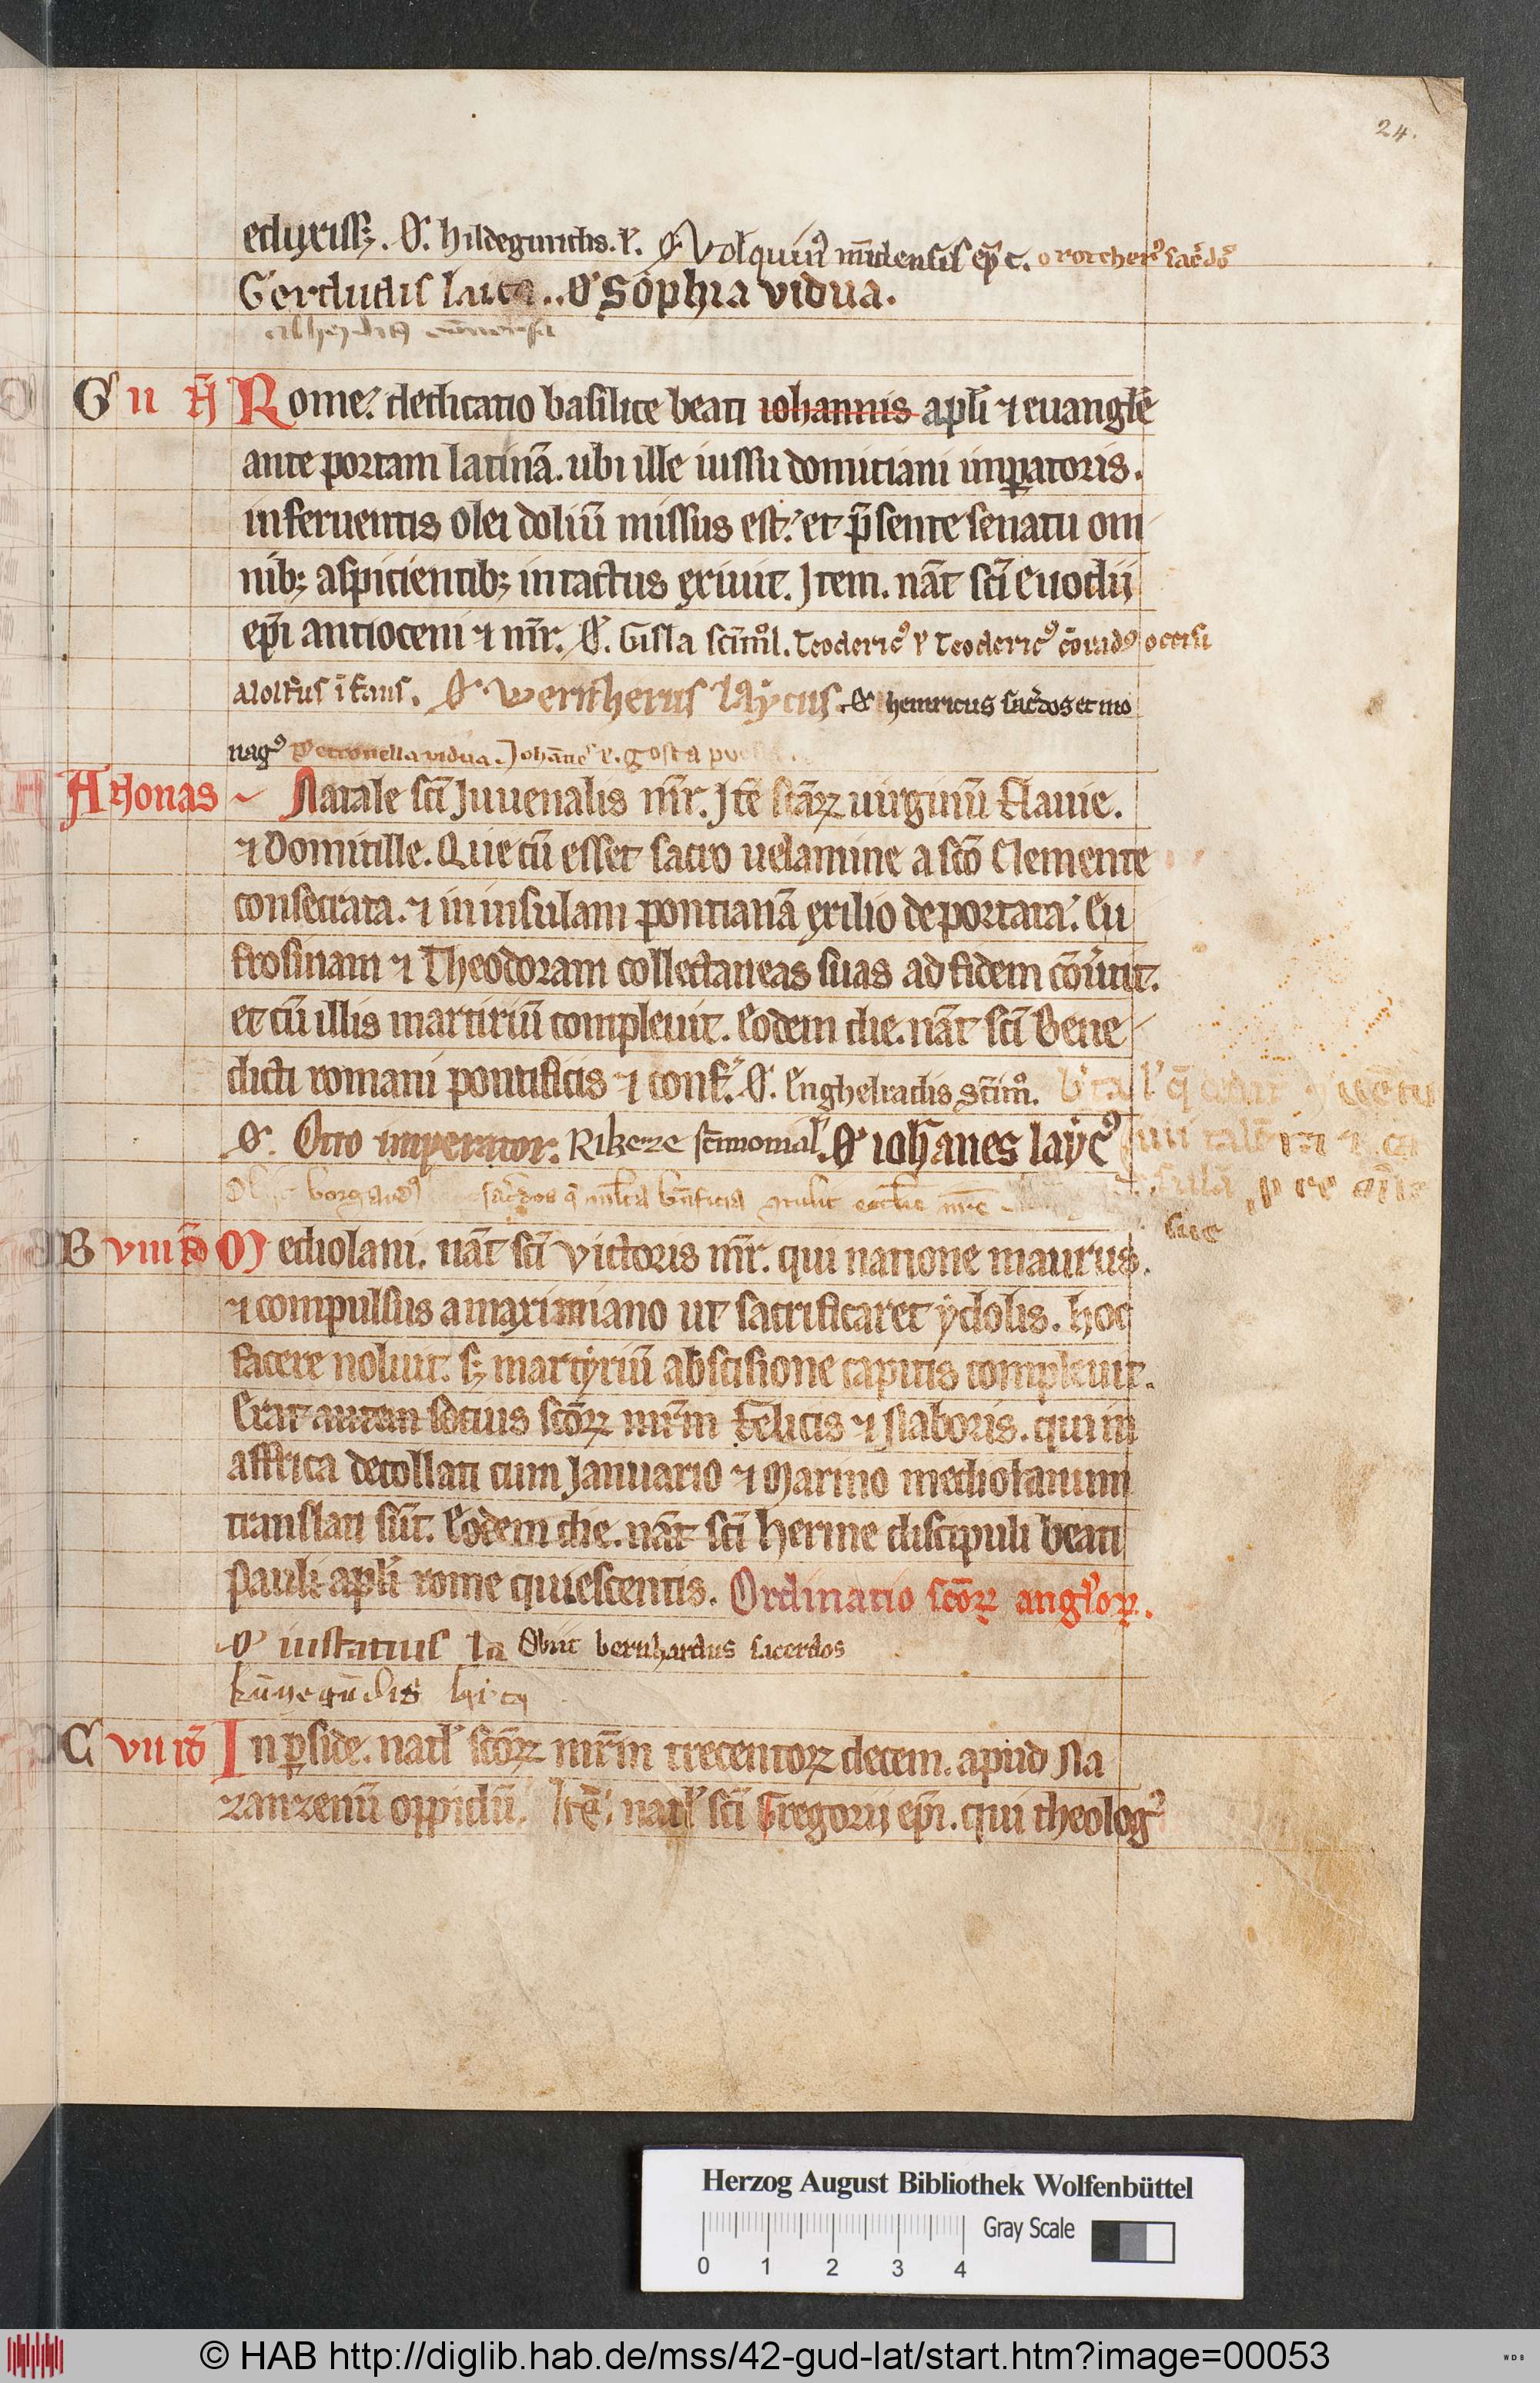 24.
eduxiss&. O. hildegundis. l'. O' Volquin9 mīdensis ep̄c. o rotcher9 sac̄dos
Gerdudis laica.. O' Sophia vidua.
G ii N̄ Rome. dedicatio basilice beati iohannis apl̄i ⁊ euangl̄e
ante portam latinā. ubi ille iussu domitiani imꝑatoris.
in feruentis olei doliū missus est. et p̄sente senatu om
nib; aspicientib; intactus exiuit. Item. nāt scī Euodii
ep̄i antioceni ⁊ mr̄. O. Gisla scīm̄l. Teoderic9 l' Teoderic9 cōrad9 occisi
alolfus īfans. O' wernherus laycus. O' heinricus sac̄dos et mo
nag9 Petronella vidua. Johānes l'. gosta puella
A Nonas Natale scī Juuenalis mr̄. Itē scāꝝ uirginū Flauie.
⁊ Domitille. Que cū esset sacro uelamine a scō Clemente
consecrata. ⁊ in insulam pontianā exilio deportata. Eu
frosinam ⁊ Theodoram collectaneas suas ad fidem cōu̾tit.
et cū illis martiriū compleuit. Eodem die. nāt scī Bene
dicti romani pontificis ⁊ conf. O. Enghelradis scīm̄.
O. Otto imperator. Rikeze scīmonial'. O' iohānes layc9
borgard9 sac̄dos q̄ multa bn̄ficia
sue
B viii id Mediolani. nāt scī Victoris mr̄. qui natione maurus.
⁊ compulsus a maximiano ut sacrificaret ydolis. hoc
facere noluit. s; martyriū abscisione capitis compleuit.
Erat autem socius scōꝝ mr̄m Felicis ⁊ Naboris. qui in
affrica decollati cum Januario ⁊ Marino mediolanum
translati sūt. Eodem die. nāt scī Herme discipuli beati
Pauli apl̄i rome quiescentis. Ordinatio scōꝝ angl̄oꝝ.
O' iustatius la Obiit bernhardus sacerdos
kūnegūdis laica
C vii id In ꝑside. natl' scōꝝ mr̄m trecentoꝝ decem. apud Na
zanzenū oppidū. Itē. natl' scī Gregorii ep̄i. qui theolog9
Herzog August Bibliothek Wolfenbüttel
Gray Scale
0 1 2 3 4
© HAB http://diglib.hab.de/mss/42-gud-lat/start.htm?image=00053
WDB